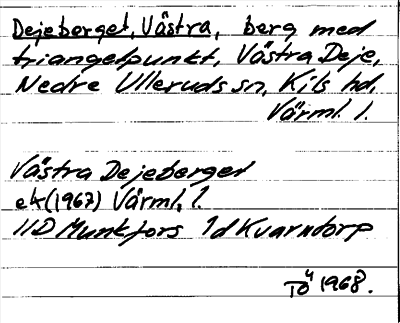 Dejeberget, Västra, berg med
triangelpunkt, Västra Deje,
Nedre Ulleruds sn, Kils hd,
Värml. l.
Västra Dejeberget
ek (1967) Värml. l.
11D Munkfors 1d Kvarntorp
TÖ 1968.